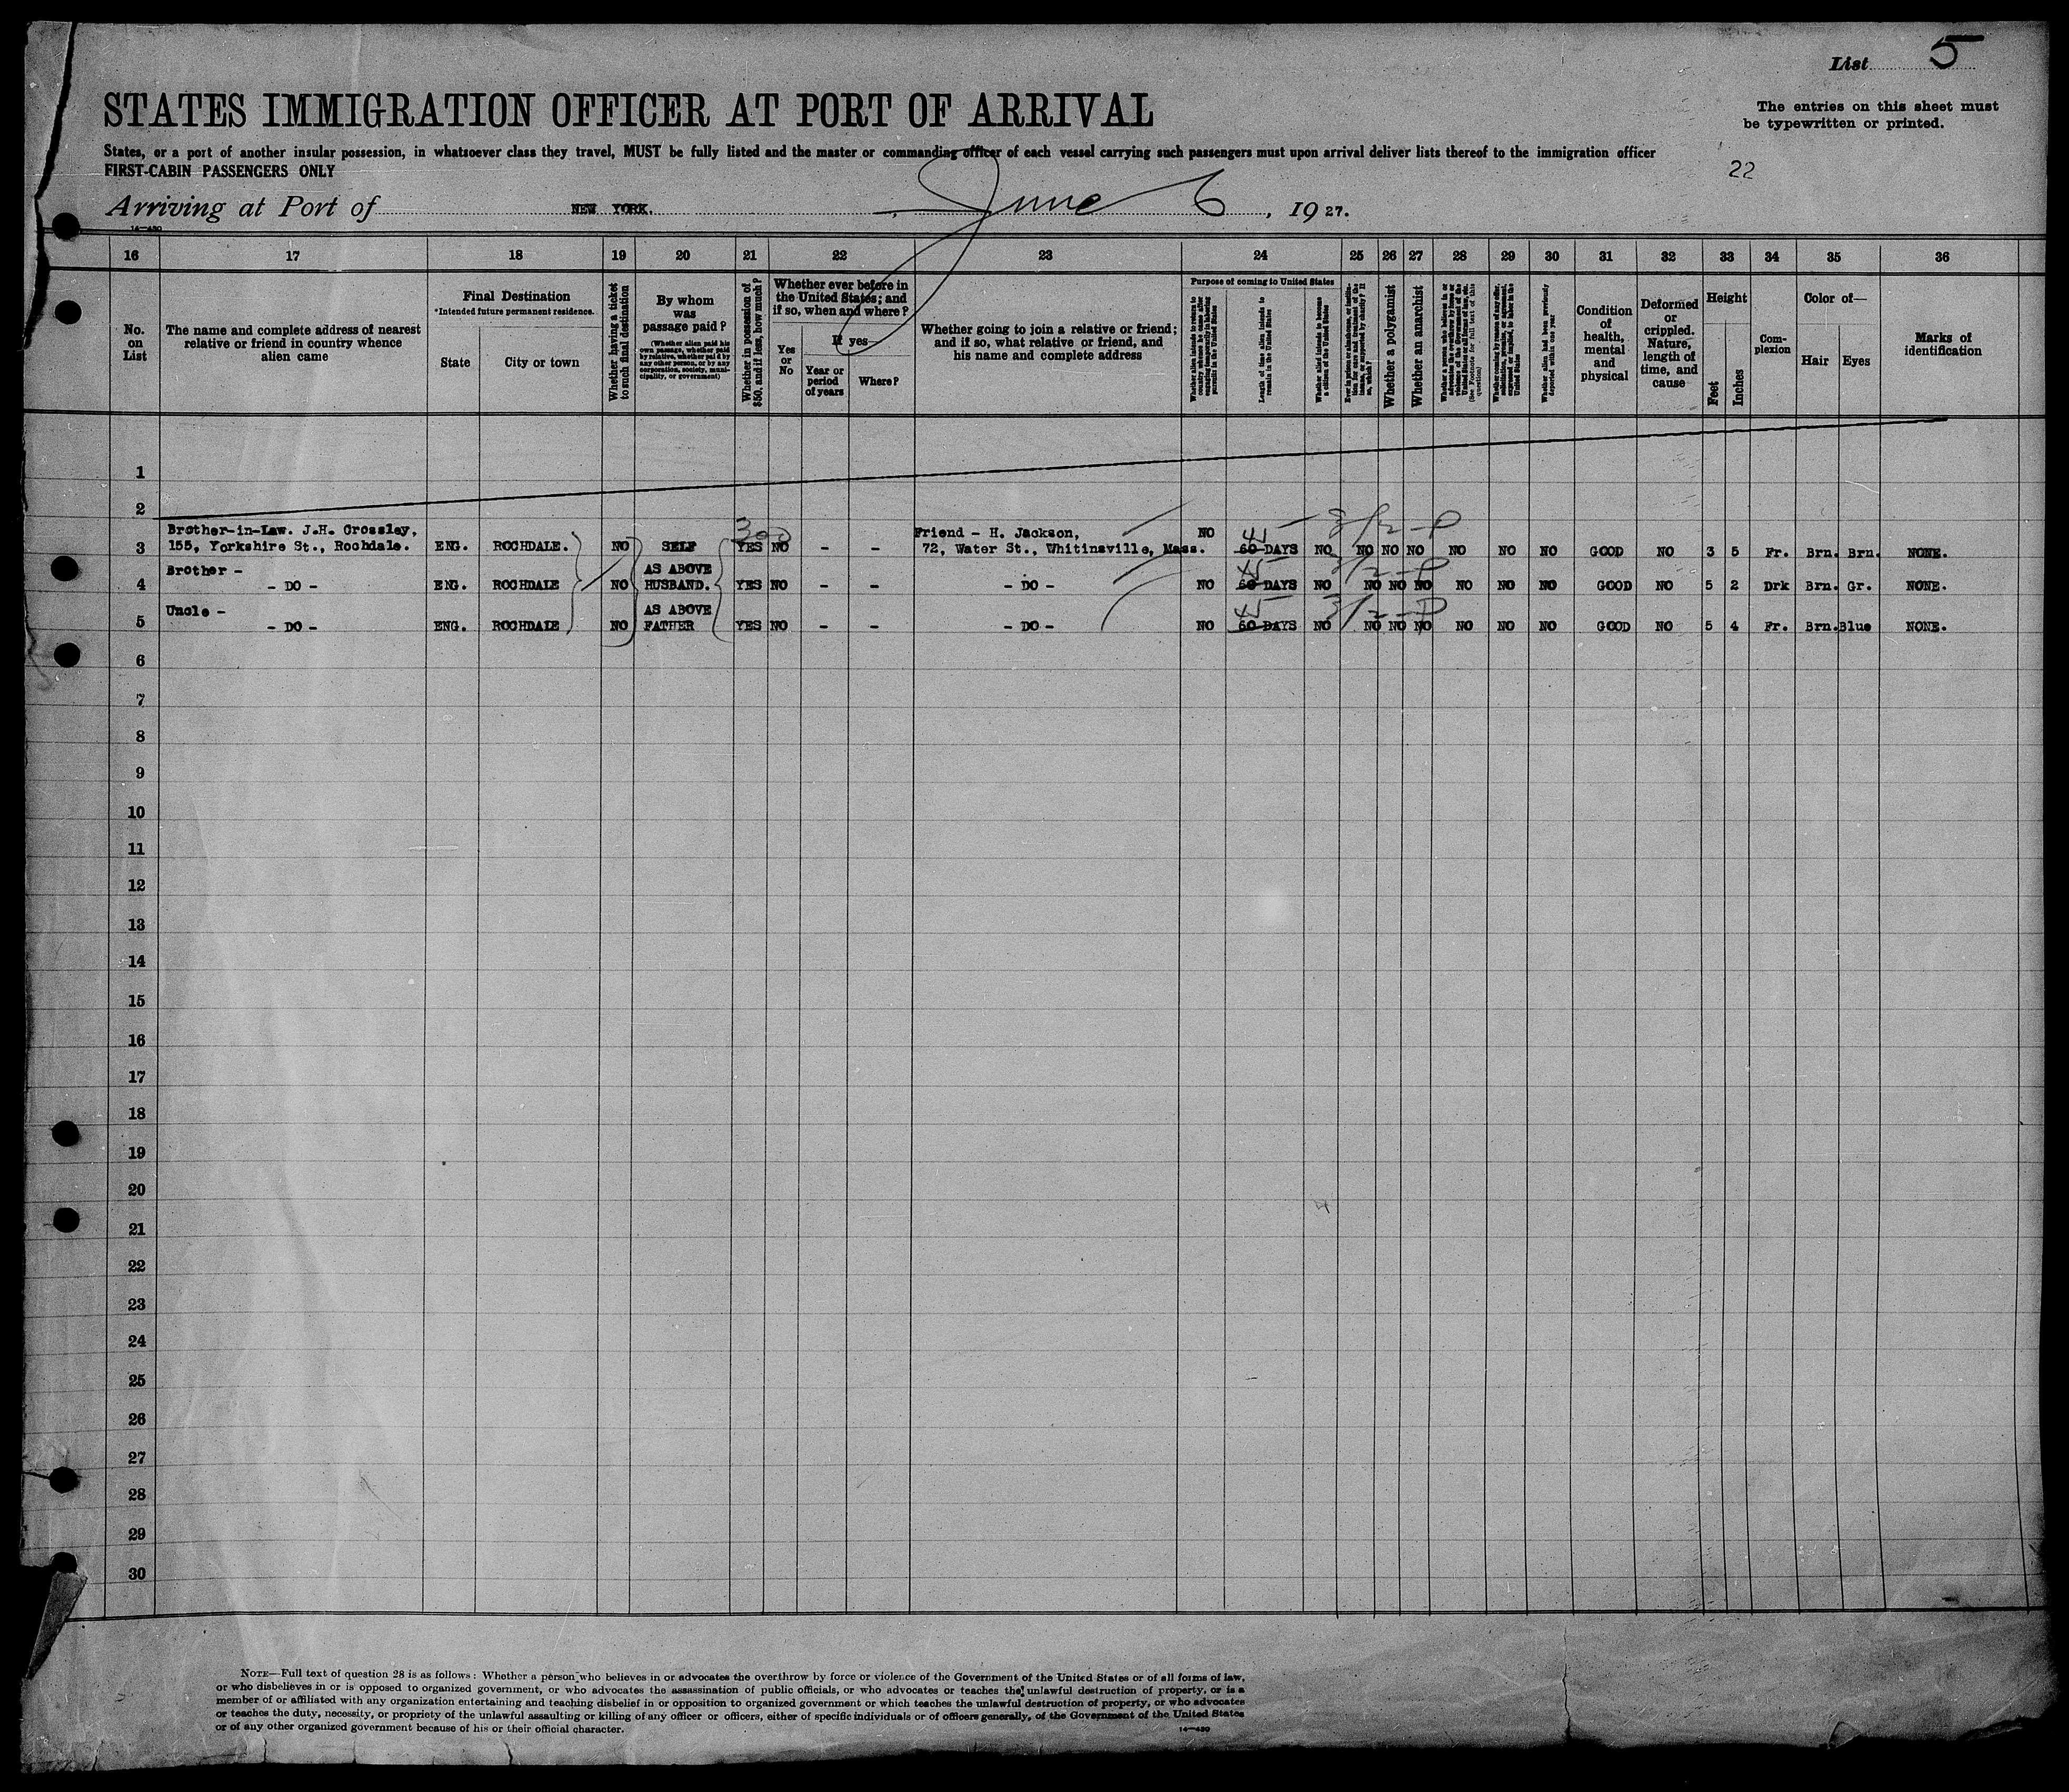 List 5
STATES IMMIGRATION OFFICER AT PORT OF ARRIVAL
The entries on this sheet must
be typewritten or printed.
States, or a port of another insular possession, in whatsoever class they travel, MUST be fully listed and the master or commanding officer of each vessel carrying such passengers must upon arrival deliver lists thereof to the immigration officer
FIRST-CABIN PASSENGERS ONLY
22
Arriving at Port of NEW YORK. , June 6 , 1927.
14—480
16 17 18 19 20 21 22 23 24 25 26 27 28 29 30 31 32 33 34 35 36
No. on List
The name and complete address of nearest relative or friend in country whence alien came
Final Destination
*Intended future permanent residence.
State
City or town
Whether having a ticket to such final destination
By whom was passage paid?
(Whether alien paid his own passage, whether paid by relative, whether paid by any other person, or by any corporation, society, municipality, or government)
Whether in possession of $50, and if less, how much?
Whether ever before in the United States; and if so, when and where?
Yes or No
If yes—
Year or period of years
Where?
Whether going to join a relative or friend; and if so, what relative or friend, and his name and complete address
Purpose of coming to United States
Length of time alien intends to remain in the United States
Whether alien intends to become a citizen of the United States
Whether a polygamist
Whether an anarchist
Whether alien had been previously deported within one year
Condition of health, mental and physical
Deformed or crippled. Nature, length of time, and cause
Height
Feet
Inches
Complexion
Color of—
Hair
Eyes
Marks of identification
1
2
Brother-in-Law. J.H. Crossley, 300 Friend - H. Jackson, NO 45 3/2-P
3 155, Yorkshire St., Rochdale. ENG. ROCHDALE. NO SELF YES NO - - 72, Water St., Whitinsville, Mass. 60 DAYS NO NO NO NO NO NO NO GOOD NO 3 5 Fr. Brn. Brn. NONE.
Brother - AS ABOVE 45 3/2-P
4 - DO - ENG. ROCHDALE NO HUSBAND. YES NO - - - DO - NO 60 DAYS NO NO NO NO NO NO NO GOOD NO 5 2 Drk Brn. Gr. NONE.
Uncle - AS ABOVE 45 3/2-P
5 - DO - ENG. ROCHDALE NO FATHER YES NO - - - DO - NO 60 DAYS NO NO NO NO NO NO NO GOOD NO 5 4 Fr. Brn. Blue NONE.
6
7
8
9
10
11
12
13
14
15
16
17
18
19
20
21
22
23
24
25
26
27
28
29
30
NOTE—Full text of question 28 is as follows: Whether a person who believes in or advocates the overthrow by force or violence of the Government of the United States or of all forms of law,
or who disbelieves in or is opposed to organized government, or who advocates the assassination of public officials, or who advocates or teaches the unlawful destruction of property, or is a
member of or affiliated with any organization entertaining and teaching disbelief in or opposition to organized government or which teaches the unlawful destruction of property, or who advocates
or teaches the duty, necessity, or propriety of the unlawful assaulting or killing of any officer or officers, either of specific individuals or of officers generally, of the Government of the United States
or of any other organized government because of his or their official character.
14—480